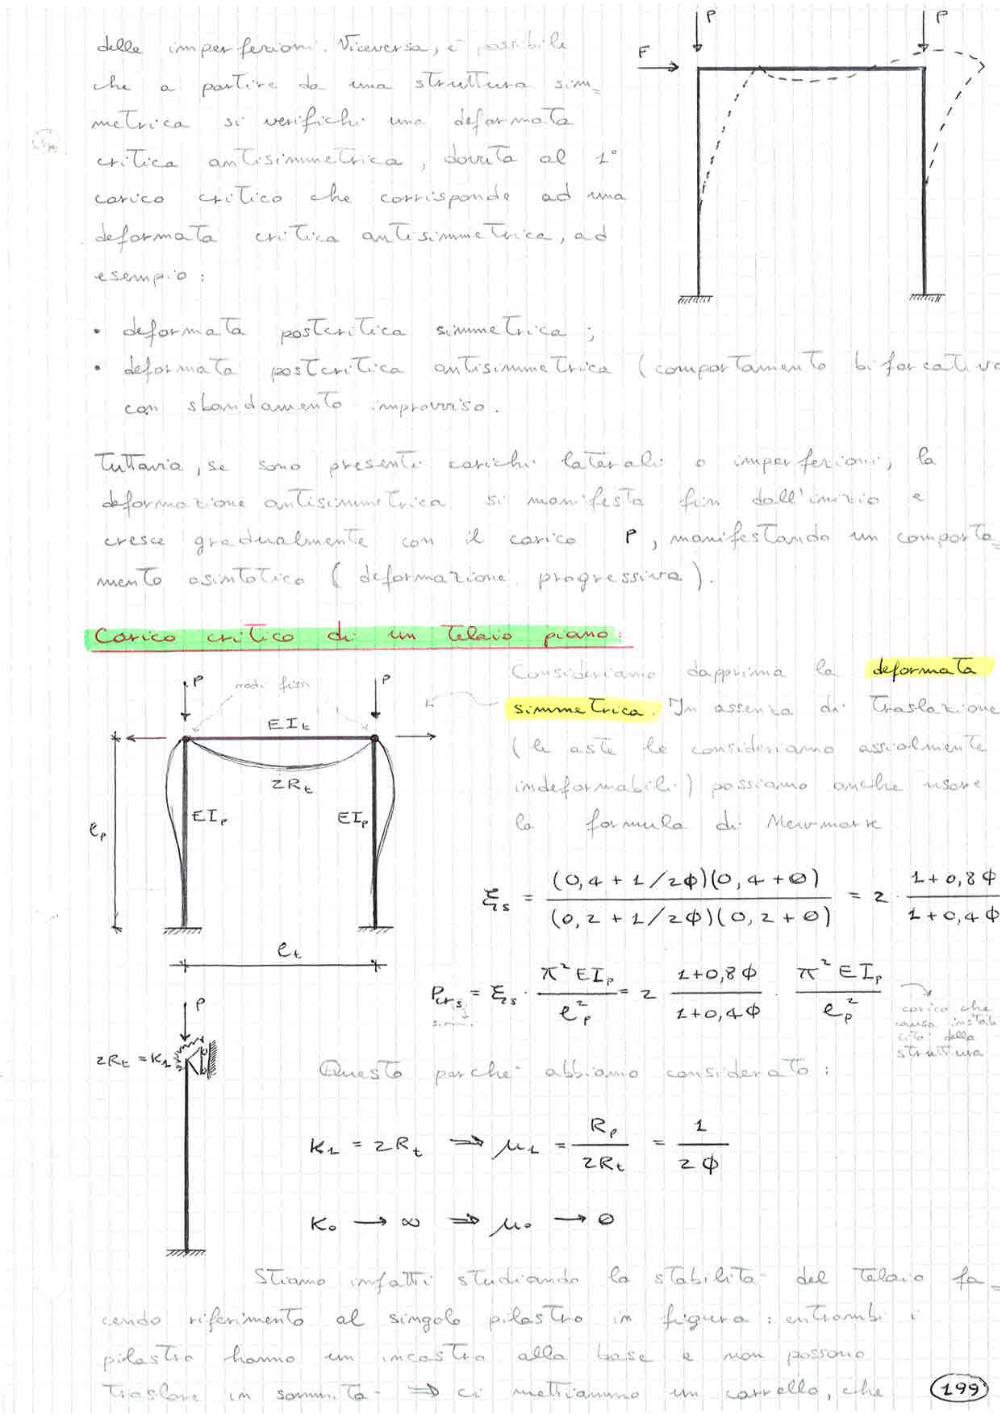 delle imperfezioni. Viceversa, è possibile
che a partire da una struttura sim=
metrica si verifichi una deformata
critica antisimmetrica, dovuta al 1°
carico critico che corrisponde ad una
deformata critica antisimmetrica, ad
esempio:
P P
F
• deformata postcritica simmetrica;
• deformata postcritica antisimmetrica (comportamento biforcativo
con sbandamento improvviso.
Tuttavia, se sono presenti carichi laterali o imperfezioni, la
deformazione antisimmetrica si manifesta fin dall'inizio e
cresce gradualmente con il carico P, manifestando un comporta=
mento asintotico (deformazione progressiva).
Carico critico di un telaio piano:
P nodi fissi P
EIt
2Rt
EIp EIp
ℓp
ℓt
Consideriamo dapprima la deformata
simmetrica. In assenza di traslazione
(le aste le consideriamo assialmente
indeformabili) possiamo anche usare
la formula di Newmark
ξs = (0,4 + 1/2ϕ)(0,4 + 0) / (0,2 + 1/2ϕ)(0,2 + 0) = 2 · 1+0,8ϕ / 1+0,4ϕ
Pcrs = ξs · π² EIp / ℓp² = 2 1+0,8ϕ / 1+0,4ϕ · π² EIp / ℓp²
simm.
carico che
causa instabi
lità della
struttura
P
2Rt = K1
Questo perché abbiamo considerato:
K1 = 2Rt ⇒ μ1 = Rp / 2Rt = 1 / 2ϕ
K0 → ∞ ⇒ μ0 → 0
Stiamo infatti studiando la stabilità del telaio fa=
cendo riferimento al singolo pilastro in figura: entrambi i
pilastri hanno un incastro alla base e non possono
traslare in sommità ⇒ ci mettiammo un carrello, che
199